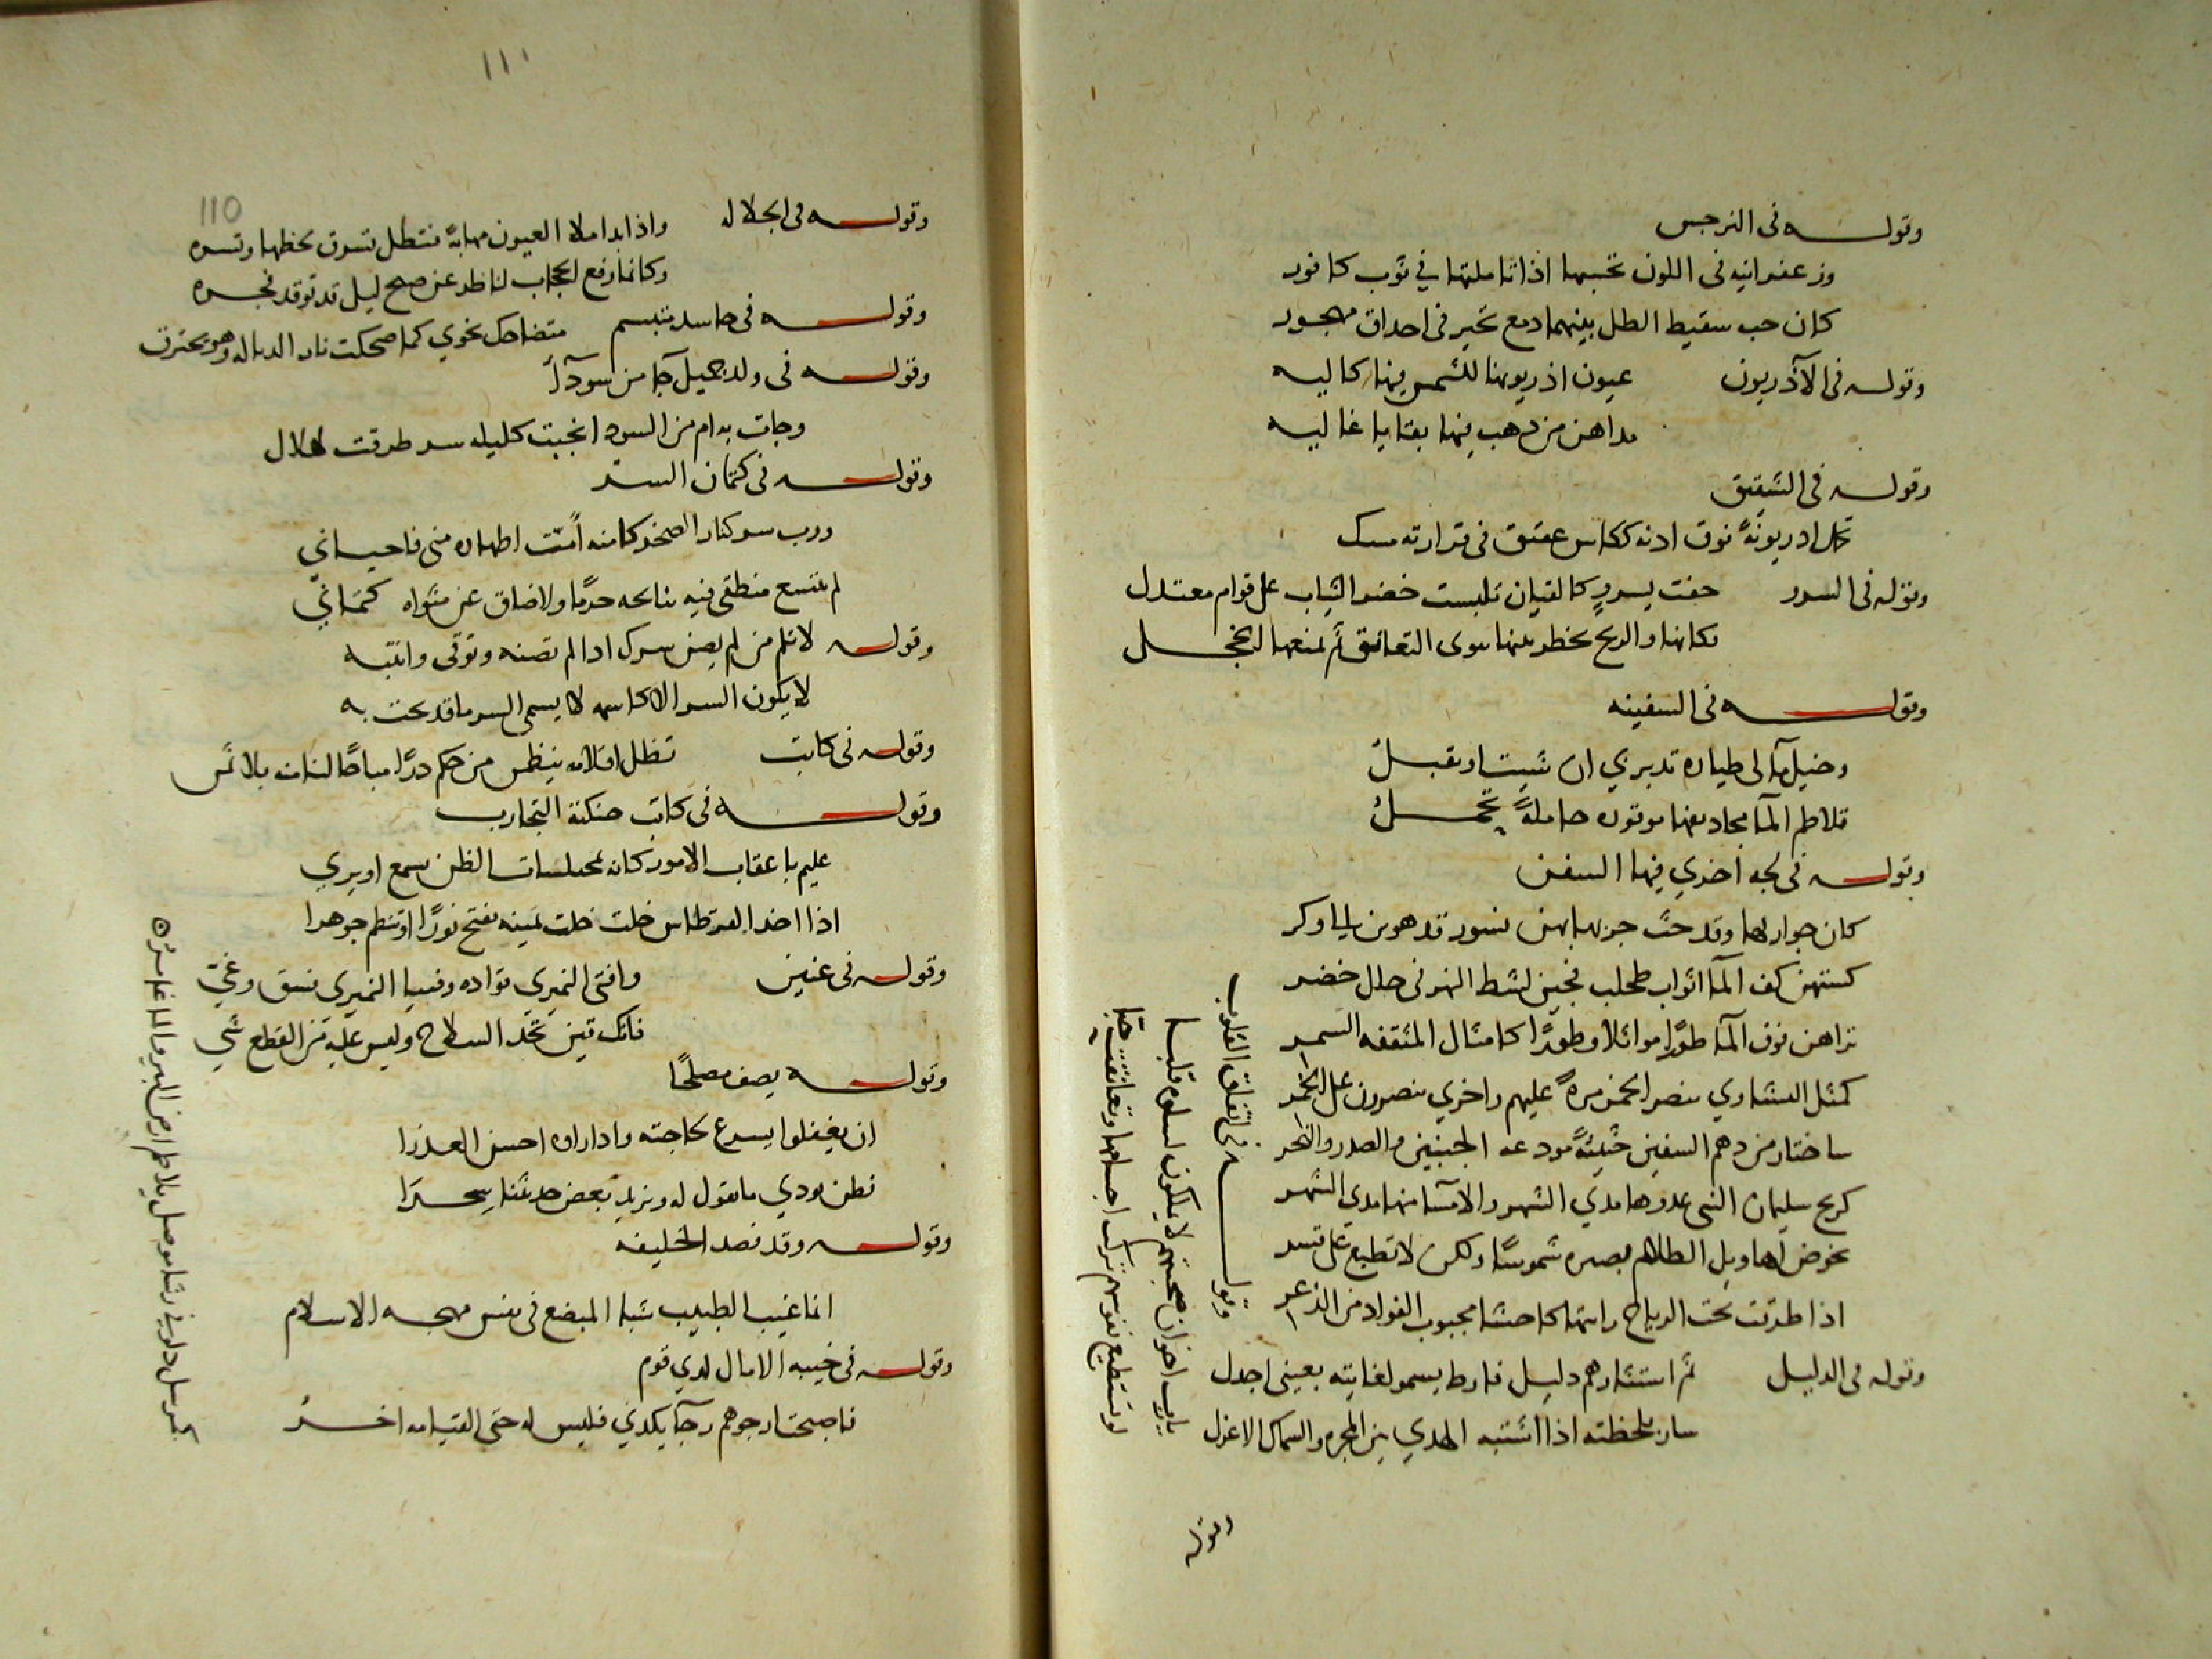 وقوله في النرجس
وزعفرانيه في اللون تحسبها اذا تاملتها في ثوب كافور
كان حب سقيط الطل بينهما دمع تحير في احداق مهجور
وقوله في الآذريون عيون اذريونها للشمس فيها كاليه
مداهن من ذهب فيها بقايا غاليه
وقوله في الشقيق
اذريونة فوق اذنه ككاس عقيق في قرارته مسك
وقوله في السرو حفت بسرو كالقيان تلبست خضر الثياب على قوام معتدل
فكانها والريح يخطر بينها تنوى التعانق ثم يمنعها الخجل
وقوله في السفينه
تدبري ان شيت او تقبل
تلاطم المآ حاملة تحمل
وقوله في لجه اخري فيها السفن
كان جواريها وقد حث جريها بهن نسور قد هوين الى وكر
كستهن كف المآ اثواب طحلب فجين لشط النهر في حلل خضر
تراهن فوق المآ طورا موائلا وطورا كامثال المثقفه السمر
كمثل النشاوي تنصر الخمر مرة عليهم واخري ينصرون على الخمر
ساختار من دهم السفين الجنبين والصدر والنحر
كريح سليمان النبي غدوها مدي الشهر والامسا منها مدي الشهر
تخوض اهاويل الظلام بصيره شموسا ولكن لا تطيع على قسر
اذا طرقت تحت الرياح رايتها الفواد من الذعر
وقوله في الدليل ثم استثارهم دليل فارط يسمو لغايته بعيني اجدل
سار بلحظته اذا اشتبه الهدي بين المجره والسماك الاعزل
وقوله في اتفاق القلوب
يارب اخوان صحبتهم لا يملكون لسلوة قلبا
لو تستطيع نفوسهم تركت اجسامها وتعانقت حبا
وقوله
١١١
110
وقوله في الجلاله واذا بدا ملا العيون مهابة فتظل تسرق لحظها وتسره
وكانما رفع الحجاب لناظر عن صبح ليل قد توقد فجره
وقوله في حاسد متبسم متضاحك نحوي كما ضحكت نار الذباله وهو يحترق
وقوله في ولد جميل جآ من سودآ
وجات به ام من السود انجبت كليله سر طرقت هلال
وقوله في كتمان السر
ورب سر كنار الصخر كامنه امت اظهاره مني فاحياني
لم يتسع منطقي فيه ببائحه حزما ولا ضاق عن مثواه كتماني
وقوله لا تلم من لم يصن سرك اذا لم تصنه وتوقى وانتبه
لا يكون السر الا كاسمه لا يسمى السر ما قد بحت به
وقوله في كاتب تظل اقلامه ينظمن من حكم درا مباحا بلا ثمن
وقوله في كاتب حنكته التجارب
عليم باعقاب الامور كانه بمختلسات الظن يسمع او يري
اذا اخذ القرطاس خلت يمينه تفتح نورا او تنظم جوهرا
وقوله في عنين وافتي النميري قواده وفتيا النميري فسق وغي
فانك قين تحد السلاح وليس عليه من القطع شي
وقوله يصف مصلحا
ان يغفلوا يسرع لحاجته واذا راوه احسن العذرا
فطن يودي ما نقول له ويزيد بعض حديثنا سحرا
وقوله وقد فصد الخليفه
انما غيب الطبيب شبا المبضع في نفس مهجه الاسلام
وقوله في خيبه الامال لدي قوم
فاصبحت ارجوهم رجآ يكدني فليس له حتى القيامه اخر